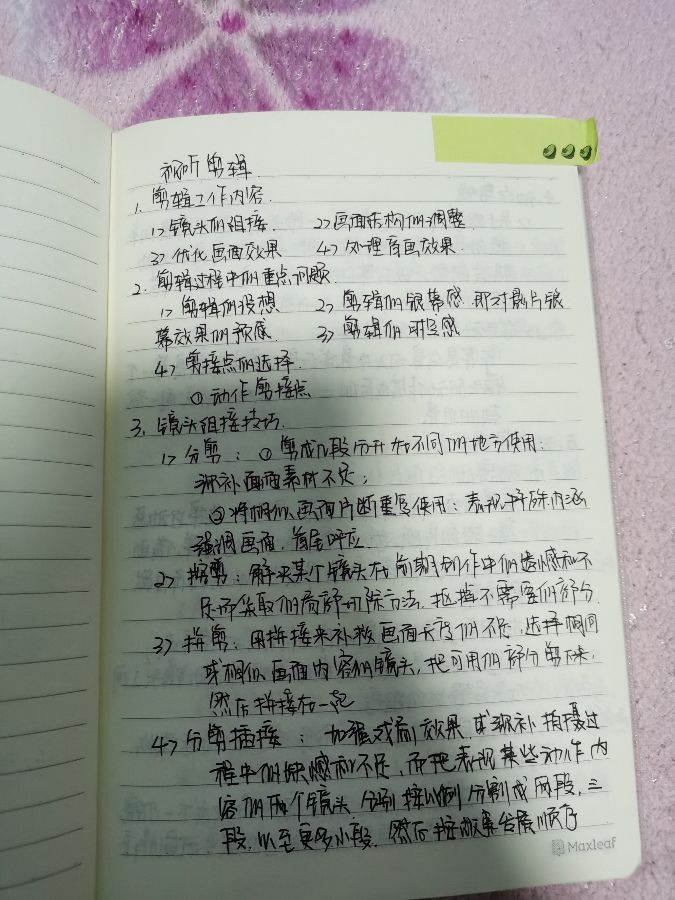 视听剪辑
1. 剪辑工作内容
1> 镜头的组接 2> 画面结构的调整
3> 优化画面效果 4> 处理音画效果
2. 剪辑过程中的重点问题
1> 剪辑的设想 2> 剪辑的银幕感,即对影片银
幕效果的预感 3> 剪辑的时空感
4> 剪接点的选择
① 动作剪接点
3. 镜头组接技巧
1> 分剪:① 剪成几段分开在不同的地方使用:
弥补画面素材不足;
② 将相似画面片断重复使用:表现特殊内涵
强调画面,首尾呼应
2> 挖剪:解决某个镜头在前期创作中的遗憾和不
足而采取的局部切除方法,挖掉不需要的部分
3> 拼剪:用拼接来补救画面长度的不足,选择相同
或相似画面内容的镜头,把可用的部分剪下来,
然后拼接在一起
4> 分剪插接:加强戏剧效果,或弥补拍摄过
程中的缺憾和不足,而把表现某些动作内
容的两个镜头分别按比例分割成两段,三
段,以至更多小段,然后按故事发展顺序
Maxleaf